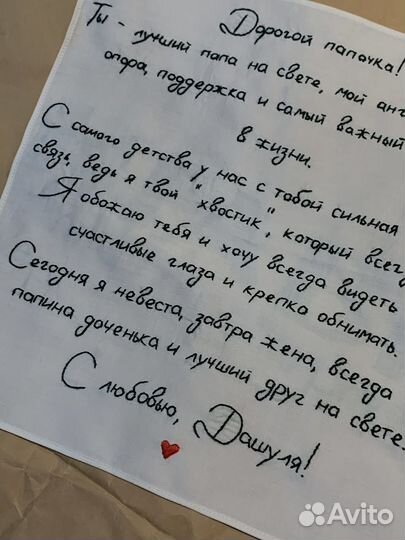 Дорогой папочка!
Ты - лучший папа на свете, мой анг
опора, поддержка и самый важный
в жизни.
С самого детства у нас с тобой сильная
связь, ведь я твой "хвостик", который всег
Я обожаю тебя и хочу всегда видеть
счастливые глаза и крепко обнимать.
Сегодня я невеста, завтра жена, всегда
папина доченька и лучший друг на свете.
С любовью, Дашуля!
Avito